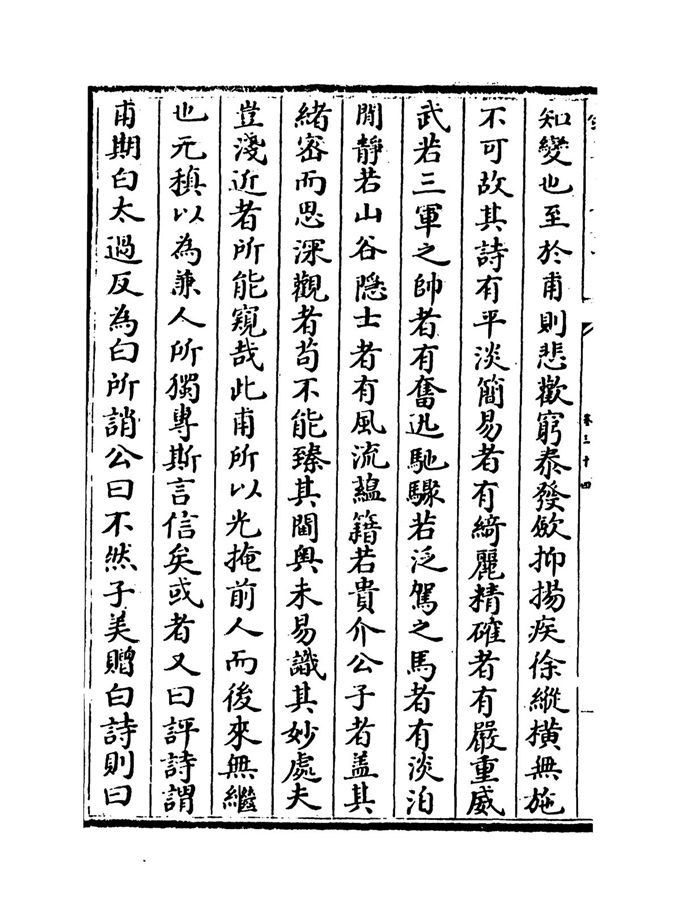 知變也至於甫則悲歡窮泰發歛抑揚疾徐縱橫無施
不可故其詩有平淡簡易者有綺麗精確者有嚴重威
武若三軍之帥者有奮迅馳驟若泛駕之馬者有淡泊
閒靜若山谷隠士者有風流藴籍若貴介公子者盖其
緒宻而思深觀者苟不能臻其閫奥未易識其妙處夫
豈淺近者所能窺哉此甫所以光掩前人而後來無繼
也元稹以為兼人所獨専斯言信矣或者又曰評詩謂
甫期白太過反為白所誚公曰不然子美贈白詩則曰
卷三十四